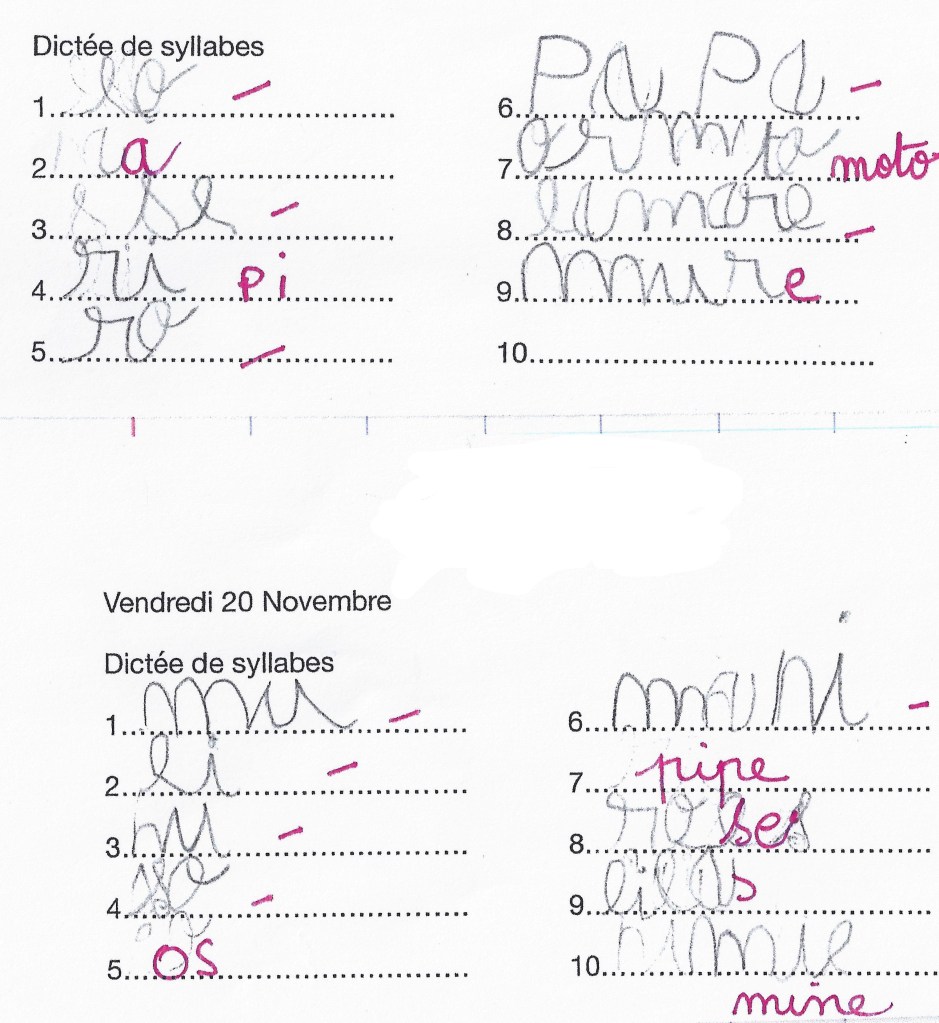 Dictée de syllabes
1.
2. a
3. se
4. ri pi
5. ro
6. papa
7. moto
8.
9. mure
10.
Vendredi 20 Novembre
Dictée de syllabes
1. mu
2. li
3. nu
4. so
5. os
6.
7. pipe
8. roses
9. lilas
10. mine